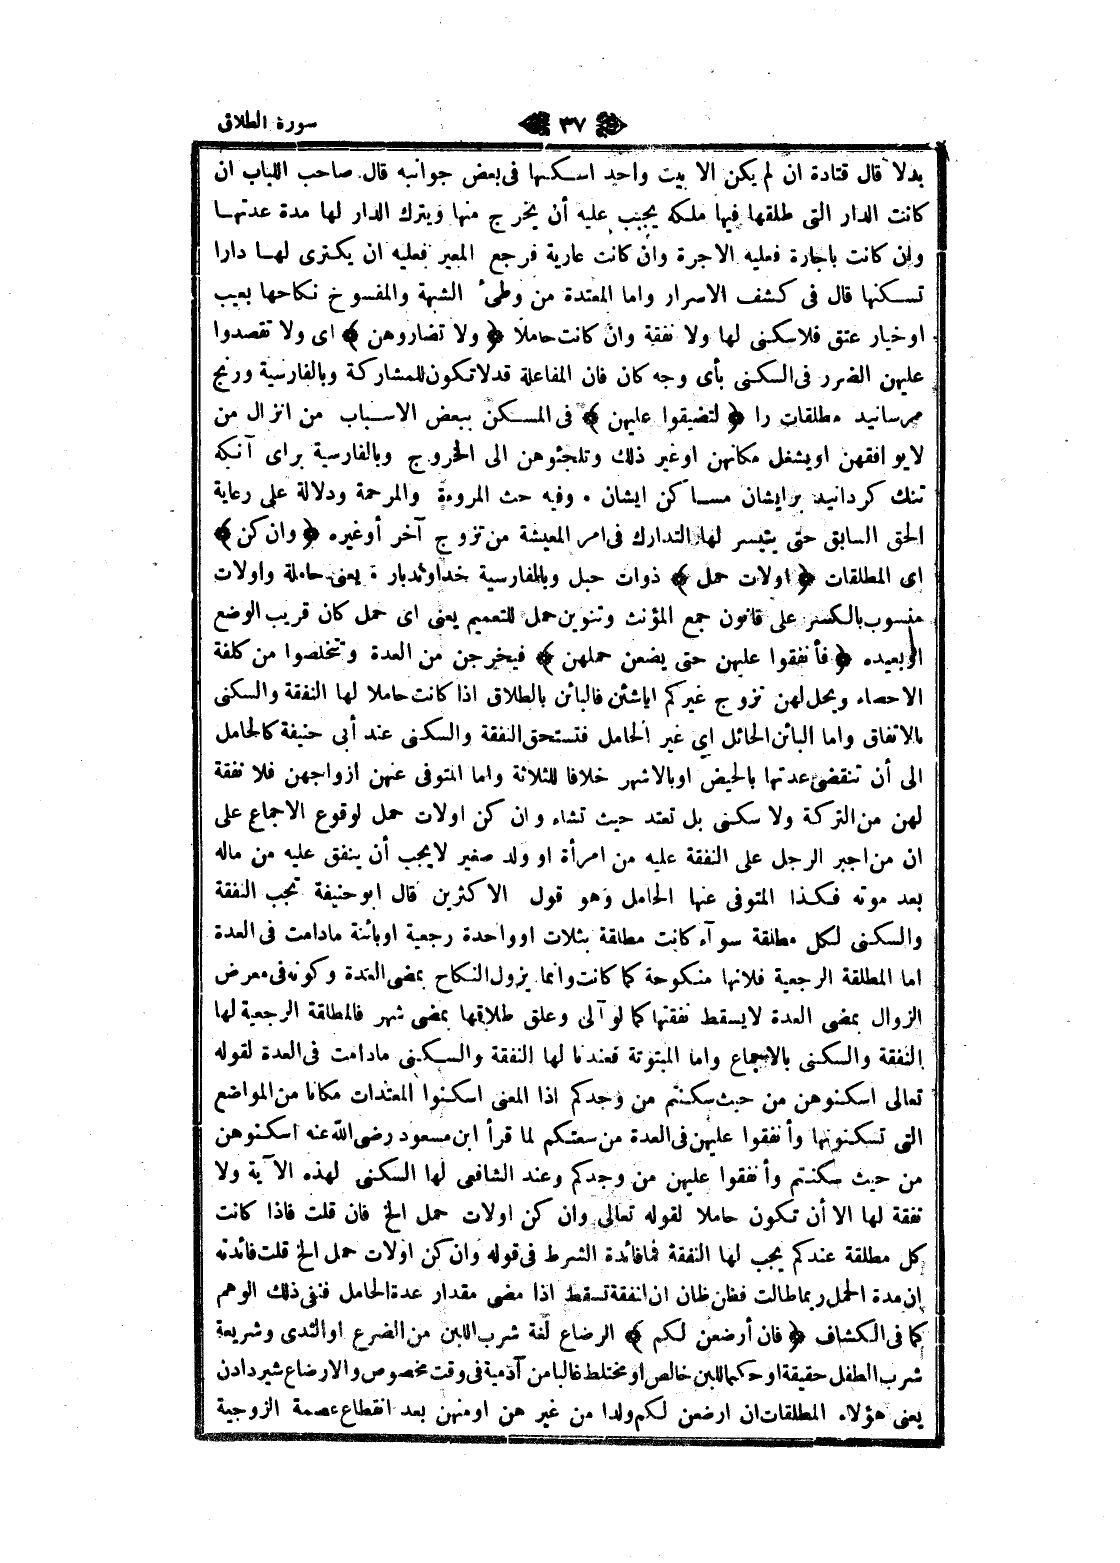 سورة الطلاق ٣٧
بدلا قال قتادة ان لم يكن الا بيت واحد اسكنها فى بعض جوانبه قال صاحب اللباب ان
كانت الدار التى طلقها فيها ملكه يجب عليه أن يخرج منها ويترك الدار لها مدة عدتها
وان كانت باجارة فعليه الاجرة وان كانت عارية فرجع المعير فعليه ان يكترى لها دارا
تسكنها قال فى كشف الاسرار واما المعتدة من وطىء الشبهة والمفسوخ نكاحها بعيب
اوخيار عتق فلاسكنى لها ولا نفقة وان كانت حاملا ﴿ ولا تضاروهن ﴾ اى ولا تقصدوا
عليهن الضرر فى السكنى بأى وجه كان فان المفاعلة قدلاتكون للمشاركة وبالفارسية ورنج
مرسانيد مطلقات را ﴿ لتضيقوا عليهن ﴾ فى المسكن ببعض الاسباب من انزال من
لايوافقهن اويشغل مكانهن اوغير ذلك وتلجئوهن الى الخروج وبالفارسية براى آنكه
تنك كردانيد برايشان مساكن ايشان ٠ وفيه حث المروءة والمرحمة ودلالة على رعاية
الحق السابق حتى يتيسر لها التدارك فى امر المعيشة من تزوج آخر أوغيره ﴿ وان كن ﴾
اى المطلقات ﴿ اولات حمل ﴾ ذوات حبل وبالفارسية خداوندبار ٠ يعنى حاملة واولات
منسوب بالكسر على قانون جمع المؤنث وتنوين حمل للتعميم يعنى اى حمل كان قريب الوضع
او بعيده ﴿ فأنفقوا عليهن حتى يضعن حملهن ﴾ فيخرجن من العدة وتتخلصوا من كلفة
الاحصاء ويحل لهن تزوج غيركم اياشئن فالبائن بالطلاق اذا كانت حاملا لها النفقة والسكنى
بالاتفاق واما البائن الحائل اى غير الحامل فتستحق النفقة والسكنى عند أبى حنيفة كالحامل
الى أن تنقضى عدتها بالحيض اوبالاشهر خلافا للثلاثة واما المتوفى عنهن ازواجهن فلا نفقة
لهن من التركة ولا سكنى بل تعتد حيث تشاء وان كن اولات حمل لوقوع الاجماع على
ان من اجبر الرجل على النفقة عليه من امرأة او ولد صغير لايجب أن ينفق عليه من ماله
بعد موته فكذا المتوفى عنها الحامل وهو قول الاكثرين قال ابوحنيفة تجب النفقة
والسكنى لكل مطلقة سوآء كانت مطلقة بثلاث اوواحدة رجعية اوبائنة مادامت فى العدة
اما المطلقة الرجعية فلانها منكوحة كما كانت وانما يزول النكاح بمضى العدة وكونه فى معرض
الزوال بمضى العدة لايسقط نفقتها كما لو آلى وعلق طلاقها بمضى شهر فالمطلقة الرجعية لها
النفقة والسكنى بالاجماع واما المبتوتة فعندنا لها النفقة والسكنى مادامت فى العدة لقوله
تعالى اسكنوهن من حيث سكنتم من وجدكم اذا المعنى اسكنوا المعتدات مكانا من المواضع
التى تسكنونها وأنفقوا عليهن فى العدة من سعتكم لما قرأ ابن مسعود رضى الله عنه اسكنوهن
من حيث سكنتم وأنفقوا عليهن من وجدكم وعند الشافعى لها السكنى لهذه الآية ولا
نفقة لها الا أن تكون حاملا لقوله تعالى وان كن اولات حمل الخ فان قلت فاذا كانت
كل مطلقة عندكم يجب لها النفقة فمافائدة الشرط فى قوله وان كن اولات حمل الخ قلت فائدته
ان مدة الحمل ربماطالت فظن ظان ان النفقة تسقط اذا مضى مقدار عدة الحامل فنفى ذلك الوهم
كما فى الكشاف ﴿ فان أرضعن لكم ﴾ الرضاع لغة شرب اللبن من الضرع اوالثدى وشريعة
شرب الطفل حقيقة اوحكماللبن خالص اومختلط غالبا من آدمية فى وقت مخصوص والارضاع شيردادن
يعنى هؤلاء المطلقات ان ارضعن لكم ولدا من غير هن اومنهن بعد انقطاع عصمة الزوجية